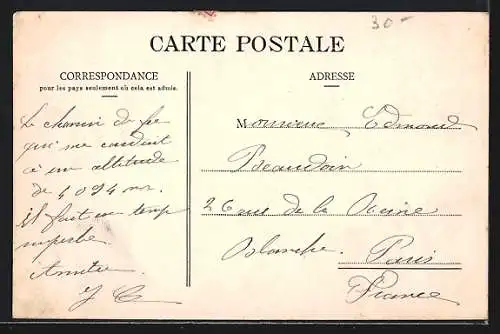 30-
CARTE POSTALE
CORRESPONDANCE
pour les pays seulement où cela est admis.
Le chemin de fer
qui me conduit
à une altitude
de 4094 m.
il fait un temps
superbe.
Amitiés
ADRESSE
Monsieur Edmond
Beaudoin
26 rue de la Reine
Blanche. Paris
France